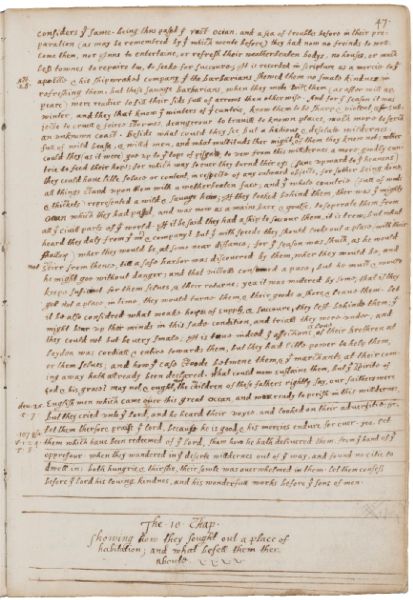 47.
considers yͤ same. Being thus passed yͤ vast ocean, and a sea of troubles before in their pre-
paration (as may be remembred by yͭ which wente before) they had now no friends to wel-
come them, nor inns to entertaine, or refresh their weatherbeaten bodys, no houses, or much
less townes to repaire too, to seeke for succoure; It is recorded in scripture as a mercie to yͤ
apostle & his shipwraked company, yͭ the barbarians shewed them no smale kindnes in
act. 28.
refreshing them, but these savage barbarians, when they mette with them (as after will ap-
peare) were readier to fill their sids full of arrows then otherwise. And for yͤ season it was
winter, and they that know yͤ winters of yͭ cuntrie, know them to be sharp & violent & sub-
jecte to cruell & feirce stormes, dangerous to travill to known places, much more to serch
an unknown coast. Besids what could they see but a hidious & desolate wildernes,
full of wild beasts, & willd men, and what multituds ther might be of them they knew not; nether
could they (as it were) goe up to yͤ tope of pisgah, to vew from this willdernes a more goodly cun-
trie to feed their hops; for which way soever they turnd their eys (save upward to yͤ heavens)
they could have litle solace or content, in respecte of any outward objects, for sumer being done,
all things stand upon them with a wetherbeaten face; and yͤ whole countrie, full of woods
& thickets, represented a wild & savage heiw; If they looked behind them, ther was yͤ mighty
ocean which they had passed, and was now as a maine barr, & goulfe, to seperate them from
all yͤ civill parts of yͤ world. If it be said they had a ship to sucour them, it is trew, but what
heard they daly from yͤ mʳ & company? but yͭ with speede they should looke out a place, with their
shallop, wher they would be, at some near distance; for yͤ season was shuch, as he would
not stirr from thence, till a safe harbor was discovered by them, wher they would be, and
he might goe without danger; and that victells consumed apace, but he must & would
keepe sufficient for them selves, & their returne; yea it was muttered by some, that if they
gott not a place in time, they would turne them, & their goods ashore, & leave them. Let
it be also considred what weake hopes of supply, & succoure, they left behinde them; yͭ
might bear up their minds in this sade condition, and trialls they were under, and
they could not but be very smale; It is true indeed, yͤ affections & love of their brethren at
Leyden was cordiall & entire towards them, but they had litle power to help them,
or them selves; and how yͤ case stoode betweene them, & yͤ marchants, at their com-
ing away, hath allready been declared. What could now sustaine them, but yͤ spirite of
god & his grace? May not & ought not the children of these fathers rightly say, our faithers were
Englishmen which came over this great ocean, and were ready to perish in this willdernes,
deu: 26. 5. 7.
but they cried unto yͤ lord, and he heard their voyce, and looked on their adversitie, &c
Let them therfore praise yͤ lord, because he is good, & his mercies endure for ever. yea, let
107 psa: v. 1. 2. 4. 5. 8.
them which have been redeemed of yͤ lord, shew how he hath delivered them, from yͤ hand of yͤ
oppressour, when they wandered in yͤ deserte willdernes out of yͤ way, and found no citie to
dwell in; both hungrie, & thirstie, their sowle was overwhelmed in them. Let them confess
before yͤ lord his loving kindnes, and his wonderfull works before yͤ sons of men.
The .10. Chap.
Showing how they sought out a place of
habitation; and what befell them ther
aboute.